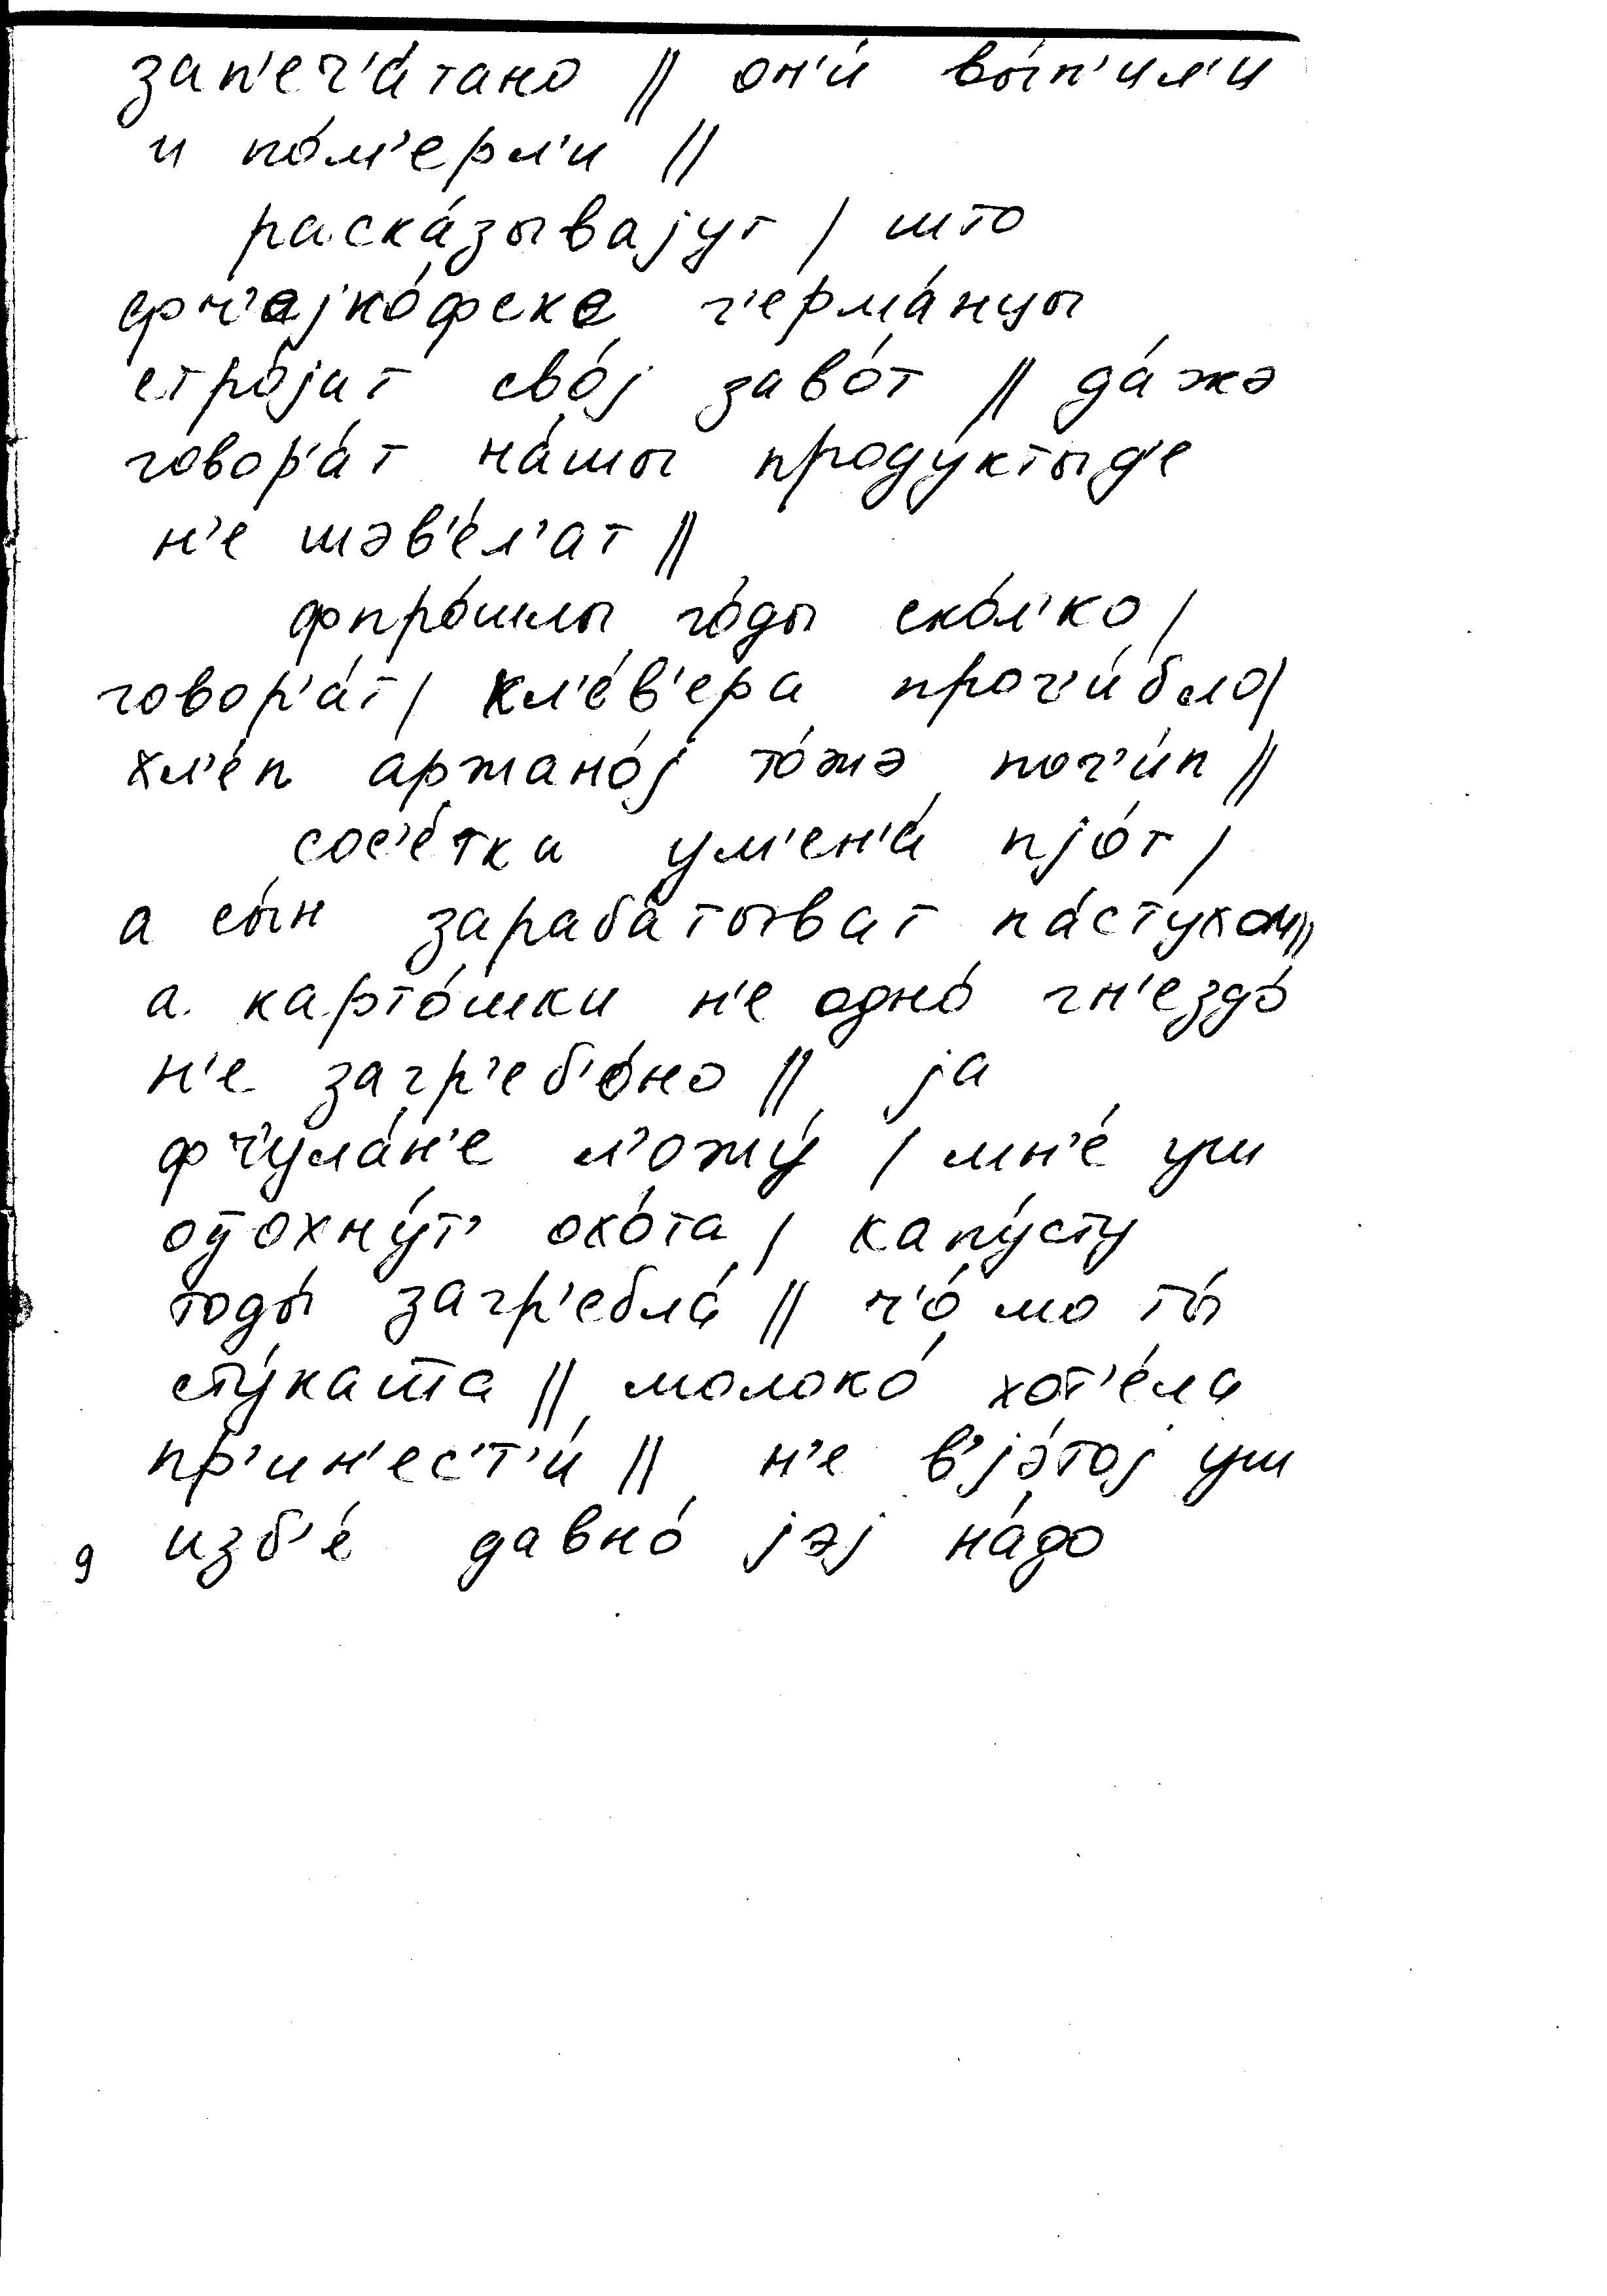 зап'еч'а́тано || он'и́ вы́п'ил'и
и по́м'ерл'и ||
раска́зывајут / што
фч'ајко́фске г'ерма́нцы
стро́јат сво́ј заво́т || да́жэ
говор'а́т на́шы проду́ктыд'е
н'е шэв'е́л'ат ||
фпро́шлы го́ды ско́л'ко /
говор'а́т / кл'е́в'ера прог'и́бло /
хл'е́п аржано́ј то́жэ пог'и́п ||
сос'е́тка ум'ен'а́ пјо́т /
а сы́н зараба́тыват па́стухом ||
а карто́шки н'е одно́ гн'ездо́
н'е загр'еб'о́но || ја
фч'ула́н'е л'ожу́ / мн'е́ уш
от̄охну́т' охо́та / капу́сту
тоды́ загр'ебла́ || ч'о́ мо ты́
сту́кат̄а || молоко́ хот'е́ла
пр'ин'ес'т'и́ || н'е в'јэ́тој уш
изб'е́ давно́ јэј на́до
9